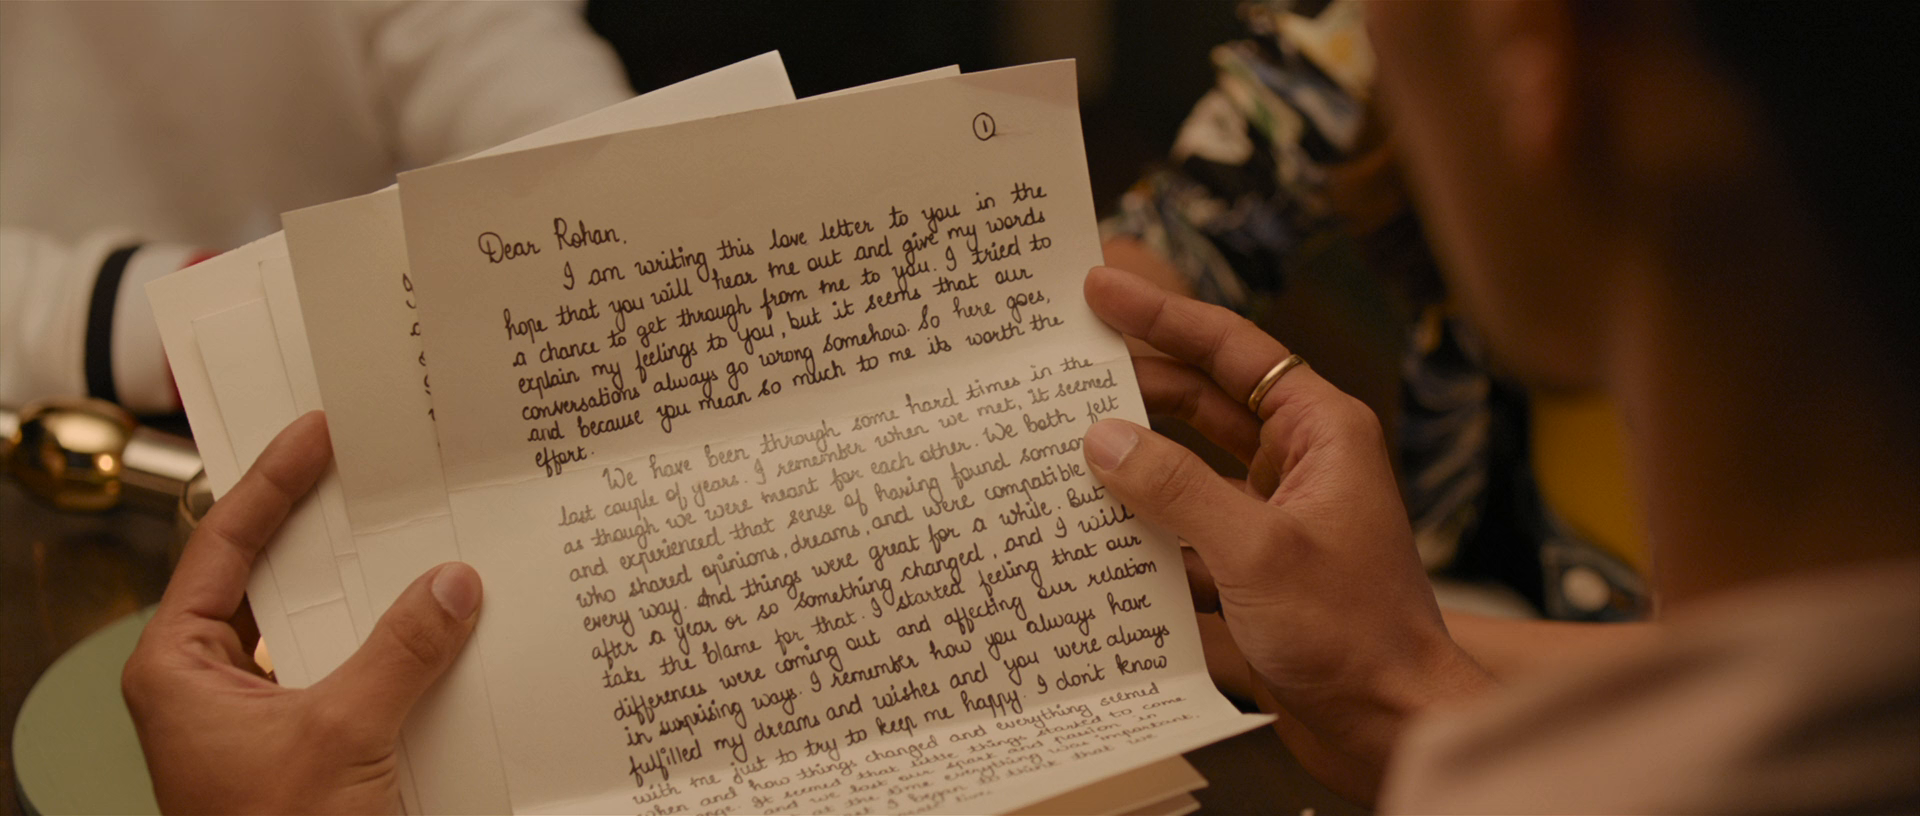 1
Dear Rohan,
I am writing this love letter to you in the
hope that you will hear me out and give my words
a chance to get through from me to you. I tried to
explain my feelings to you, but it seems that our
conversations always go wrong somehow. So here goes,
and because you mean so much to me its worth the
effort.
We have been through some hard times in the
last couple of years. I remember when we met, it seemed
as though we were meant for each other. We both felt
and experienced that sense of having found someon
who shared opinions, dreams, and were compatible
every way. And things were great for a while. But
after a year or so something changed, and I will
take the blame for that. I started feeling that our
differences were coming out and affecting our relation
in surprising ways. I remember how you always have
fulfilled my dreams and wishes and you were always
with me just to try to keep me happy. I don't know
when and how things changed and everything seemed
It seemed that little things started to come
and we lost our spark and passion in
at the time everything was important.
I began to think that we